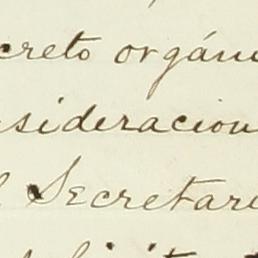 creto orgáni
nsideracion
l Secretari